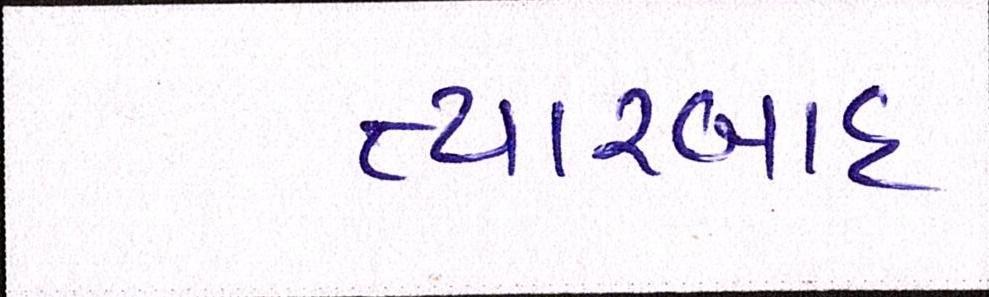 ત્યારબાદ